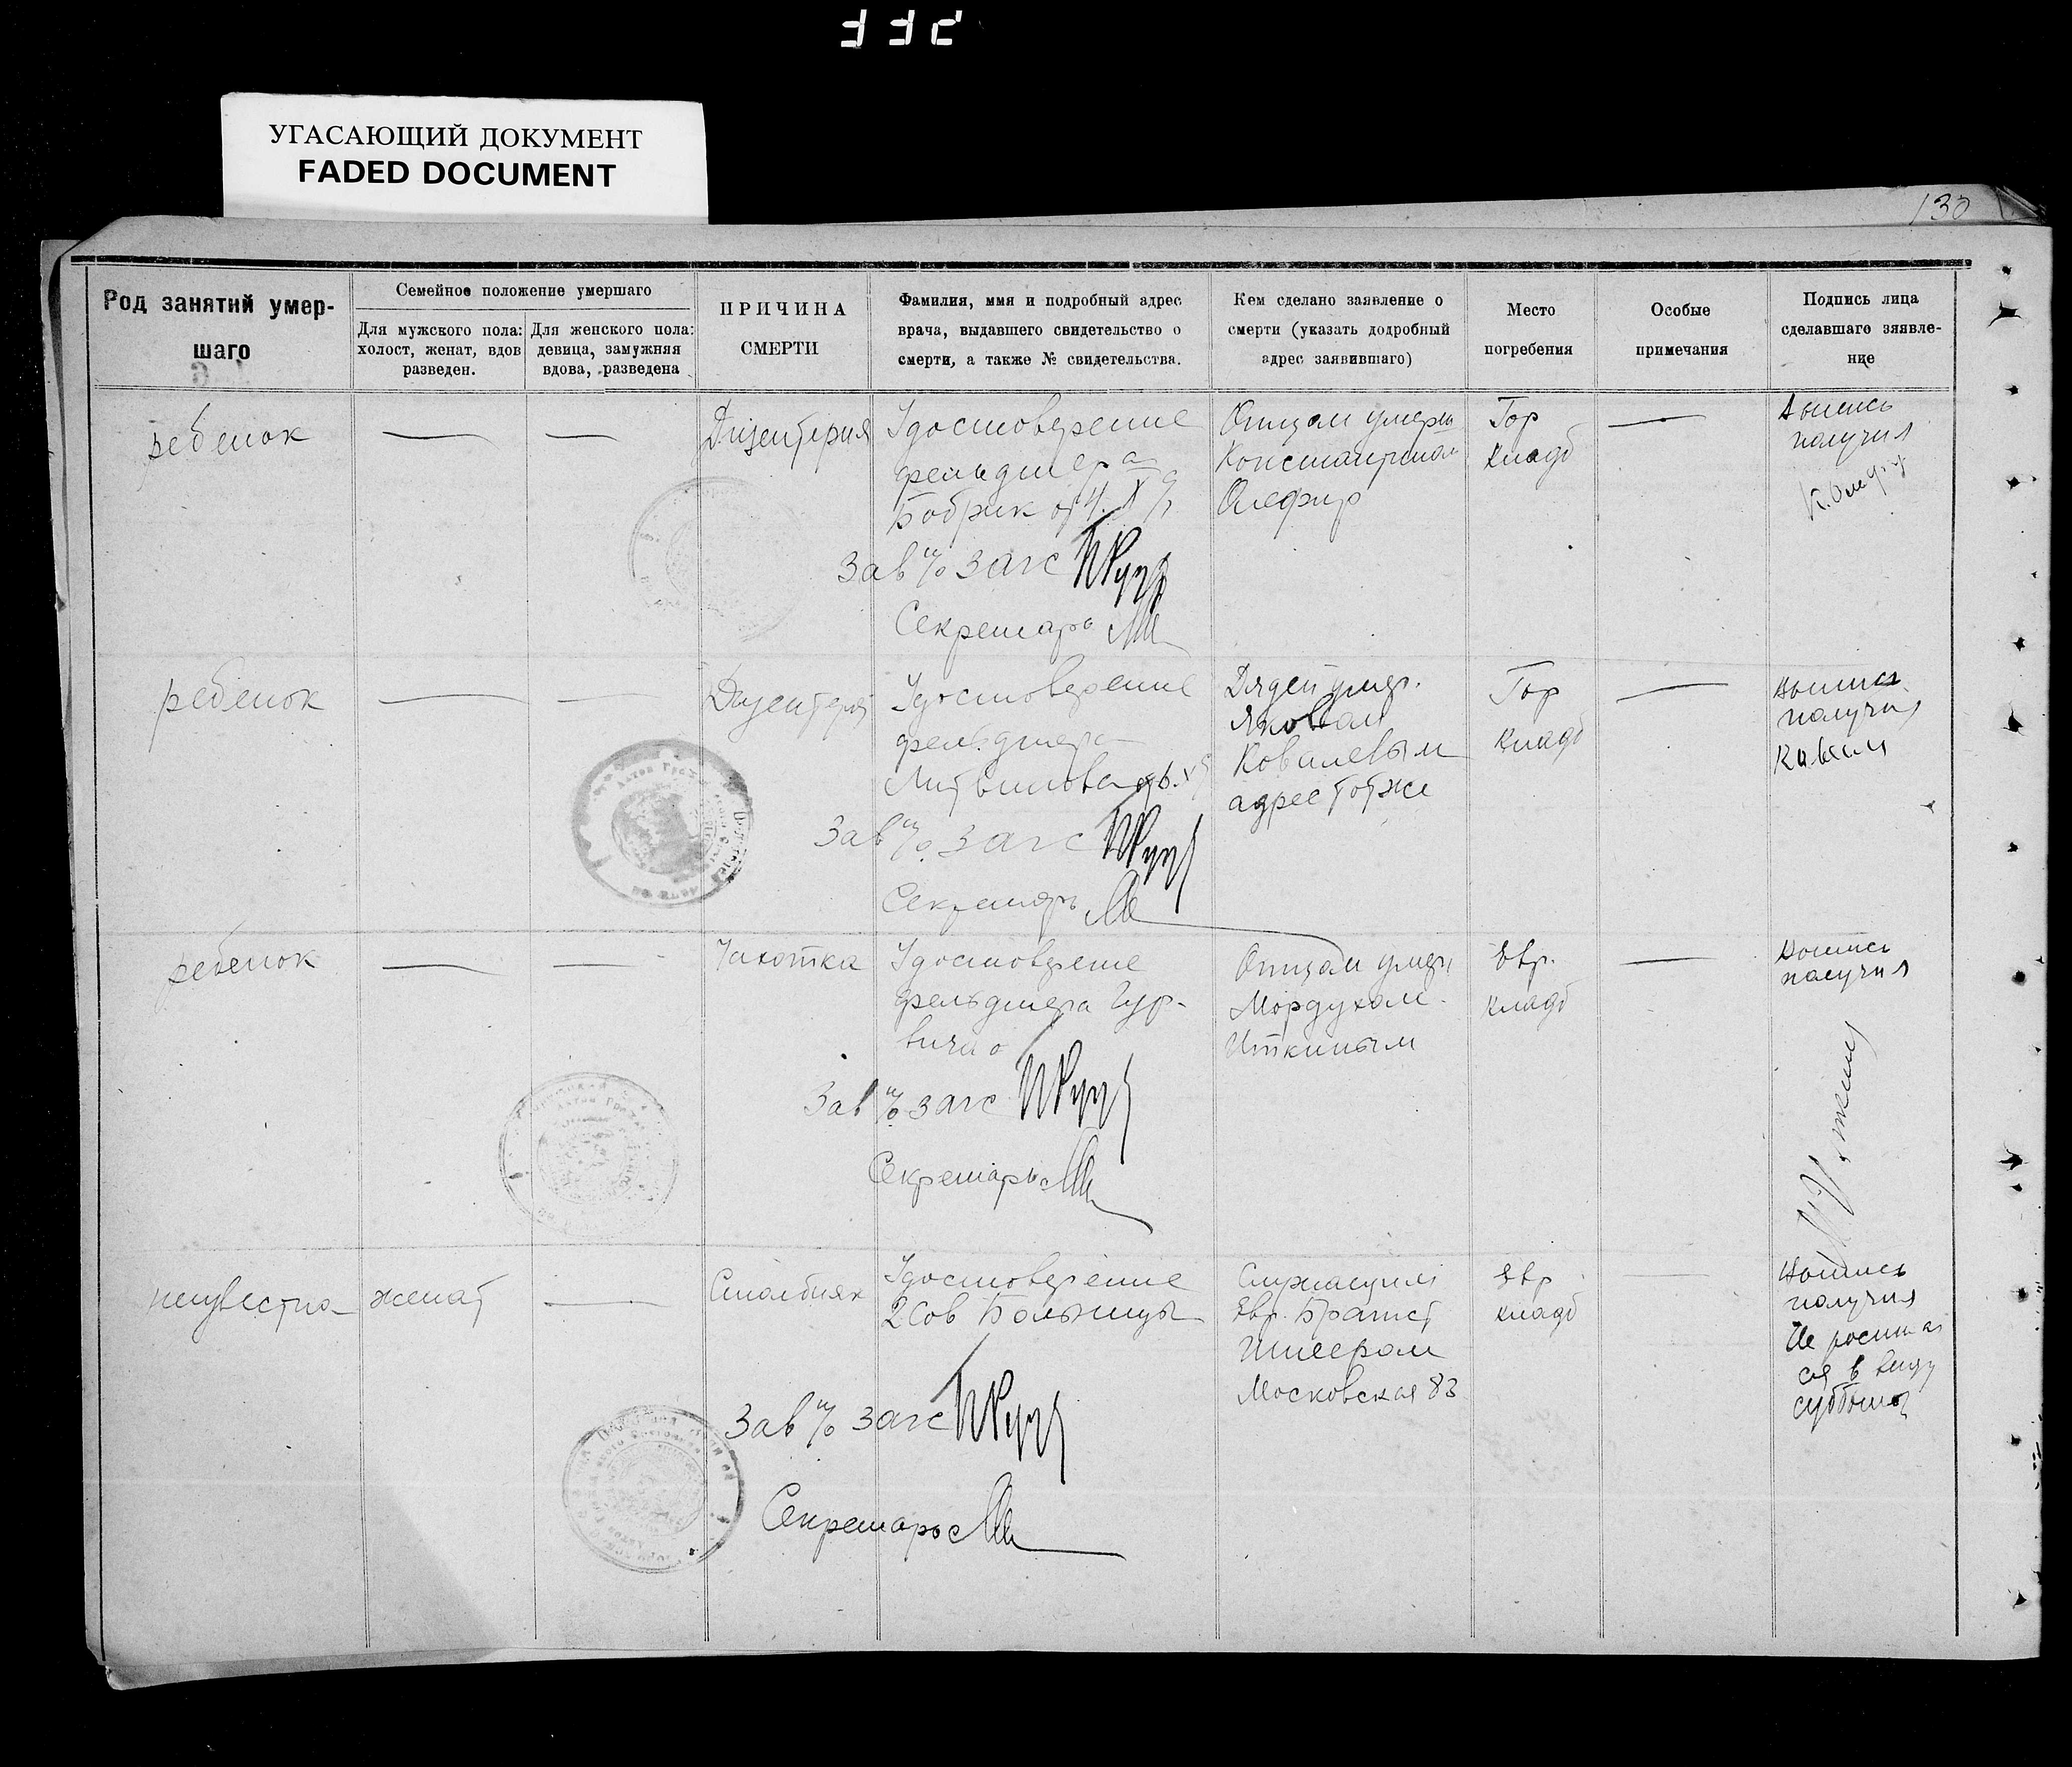 332
УГАСАЮЩИЙ ДОКУМЕНТ
FADED DOCUMENT
130
Род занятий умер-
шаго
Семейное положение умершаго
Для мужского пола:
холост, женат, вдов
разведен.
Для женского пола:
девица, замужняя
вдова, разведена
ПРИЧИНА
СМЕРТИ
Фамилия, имя и подробный адрес
врача, выдавшего свидетельство о
смерти, а также № свидетельства.
Кем сделано заявление о
смерти (указать додробный
адрес заявившаго)
Место
погребения
Особые
примечания
Подпись лица
сделавшаго зяявле-
ние
ребенок
—
—
Дизентерия
Удостоверение
фельдшера
Бобрик от 4.
Отцом умерш
Константином
Олефир
Гор
кладб
—
получил
К. Олефир
Зав п/о загс
Секретарь
ребенок
—
—
Дизентерия
Удостоверение
фельдшера
Литвинова от 6.
Дядей умер.
Яковом
Ковалевым
адрес тотже
Гор
кладб
—
получил
Зав п/о загс
Секретарь
ребенок
—
—
Чахотка
Удостоверение
фельдшера Гур-
вича
Отцом умерш
Мордухом
Иткиным
Евр.
кладб
—
получил
Зав п/о загс
Секретарь
неизвестно
женат
—
Столбняк
Удостоверение
2 Сов Больницы
Служащим
Евр. Братст
Московская 83
Евр
кладб
—
получил
Не росписал
ся в виду
субботы
Зав п/о загс
Секретарь